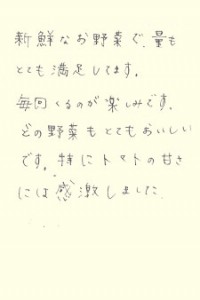 新鮮なお野菜で、量も
とても満足してます。
毎回くるのが楽しみです。
どの野菜もとてもおいしい
です。特にトマトの甘さ
には感激しました